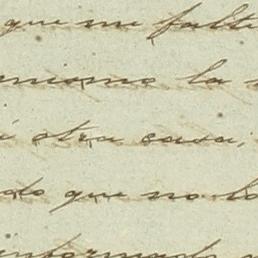 que me falte
anismo la
á otra casa,
do que no lo
informado